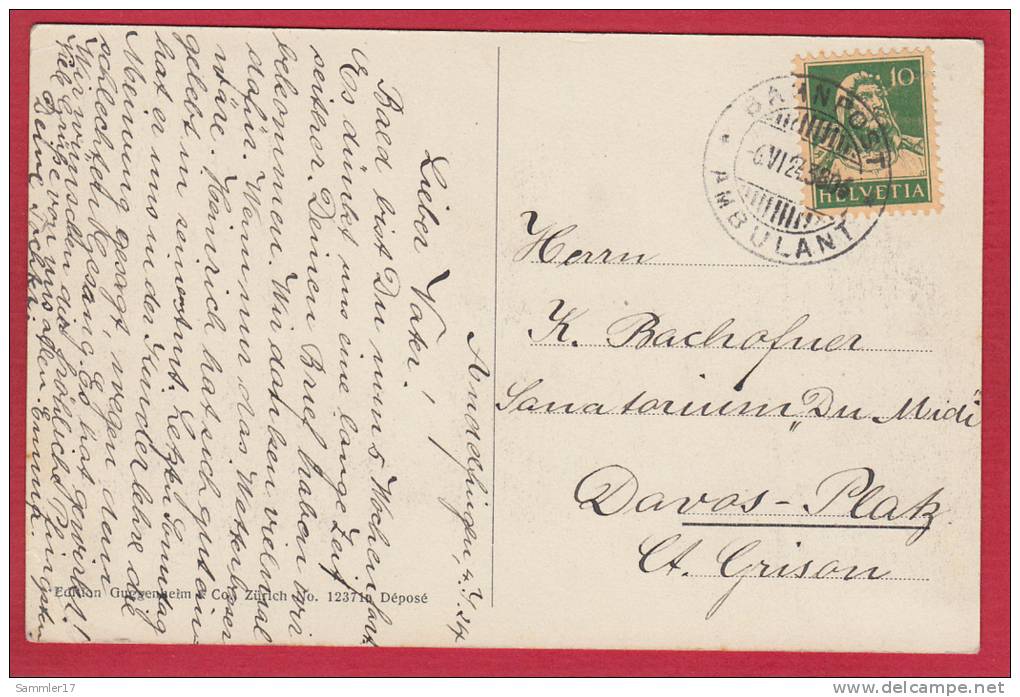 Andelfingen, 4.VI.24
Lieber Vater!
Bald bist Du nun 5 Wochen fort
Es dünkt uns eine lange Zeit
seither. Deinen Brief haben wir
bekommen. Wir danken vielmal
dafür. Wenn nur das Wetter besser
wäre. Heinrich hat sich gut ein-
gelebt in seinem Amt. Letzten Sonntag
hat er uns in der Kinderlehre die
Meinung gesagt, wegen dem
schlechten Gesang. Es hat gewirkt!
Wir wünschen dir fröhliche Pfingsten
Viele Grüße von uns allen. Emmy.
Deine
Edition Guggenheim & Co., Zürich No. 12371a Déposé
BAHNPOST
-6.VI.24
AMBULANT
10
HELVETIA
Herrn
K. Bachofner
Sanatorium „Du Midi"
Davos-Platz
Ct. Grison
Sammler17
delcampe.net